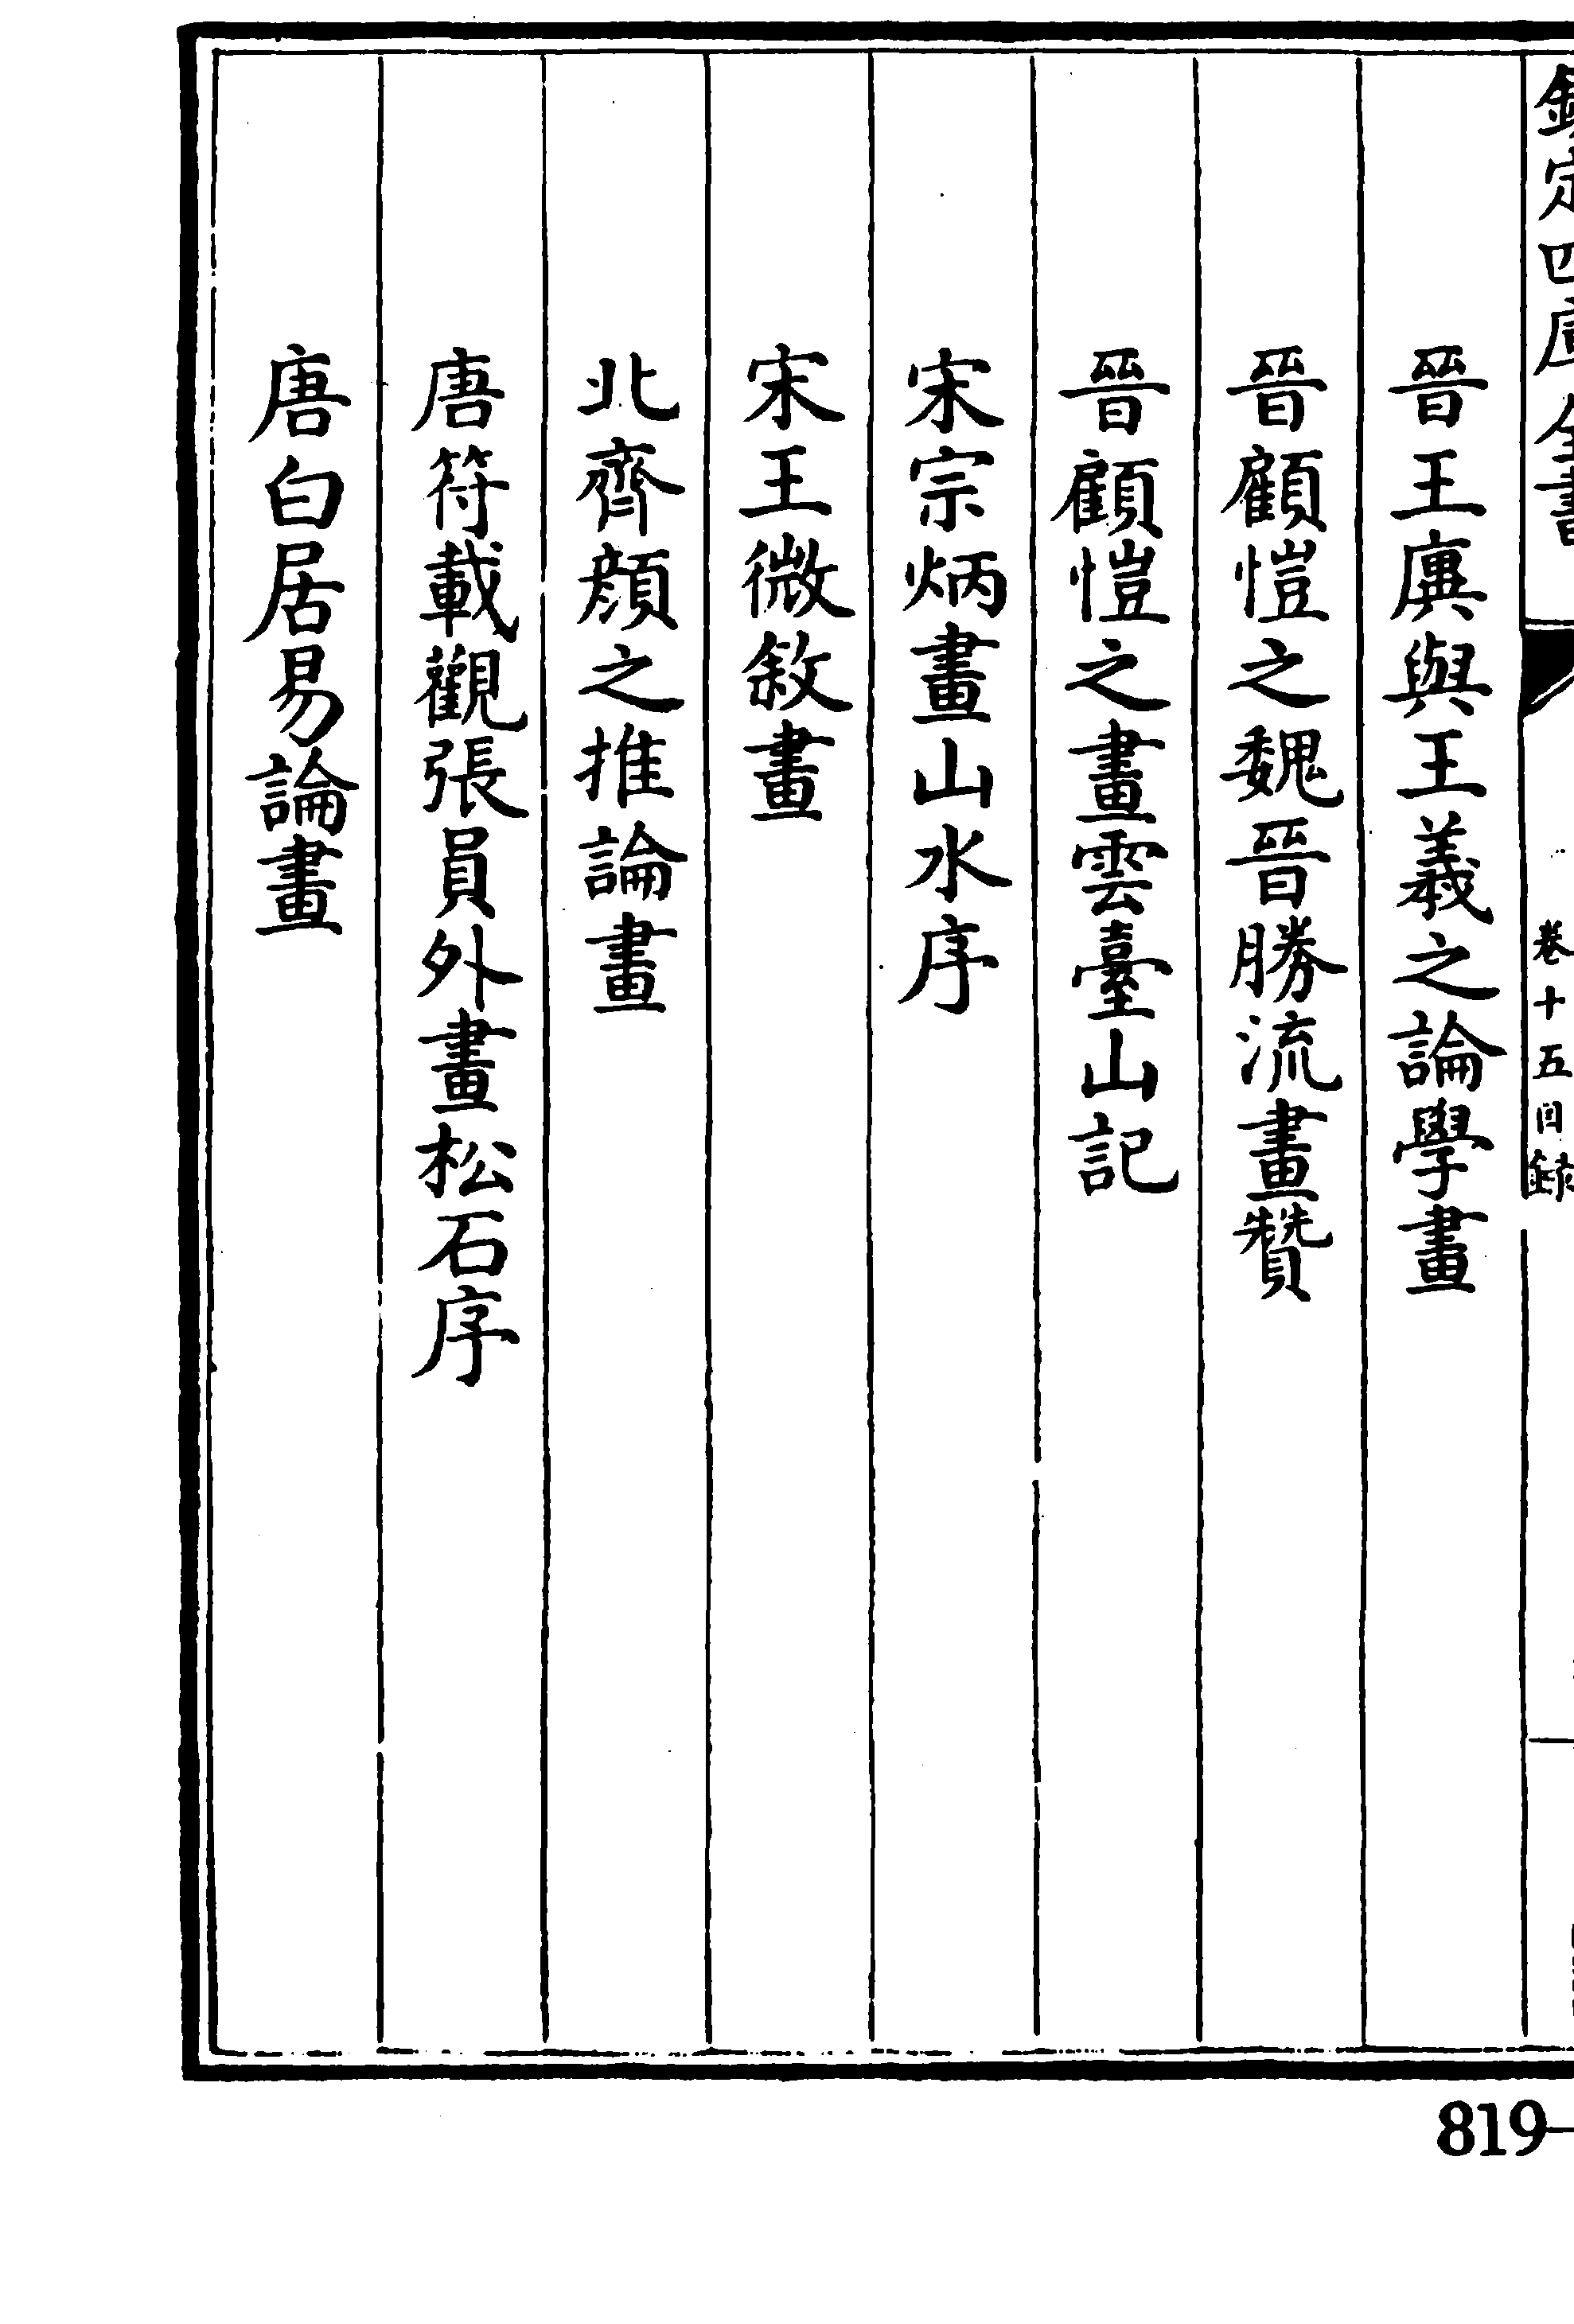 欽定四庫全書
卷十五目錄
晉王廙與王羲之論學畫
晉顧愷之魏晉勝流畫贊
晉顧愷之畫雲臺山記
宋宗炳畫山水序
宋王微敘畫
北齊顏之推論畫
唐符載觀張員外畫松石序
唐白居易論畫
819-